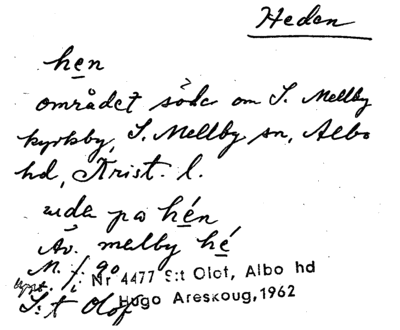 Heden
hen
området söder om S. Mellby
kyrkby, S. Mellby sn, Albo
hd, Krist. l.
på hén
Äv. melby hé
M. f. 90
Nr 4477 S:t Olof, Albo hd
Hugo Areskoug, 1962
S:t Olof